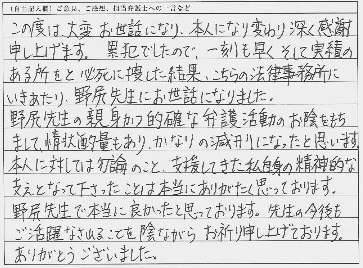 (自由記入欄)ご意見、ご感想、担当弁護士への一言など
この度は大変お世話になり、本人になり変わり深く感謝
申し上げます。 累犯でしたので、一刻も早く そして実績の
ある所をと必死に捜した結果、こちらの法律事務所に
いきあたり、野尻先生にお世話になりました。
野尻先生の親身かつ的確な弁護活動のお陰をもち
まして、情状酌量もあり、かなりの減刑になったと思います。
本人に対しては勿論のこと、支援してきた私自身の精神的な
支えとなって下さったことは本当にありがたく思っております。
野尻先生で本当に良かったと思っております。先生の今後も
ご活躍なされることを陰ながら お祈り申し上げております。
ありがとうございました。